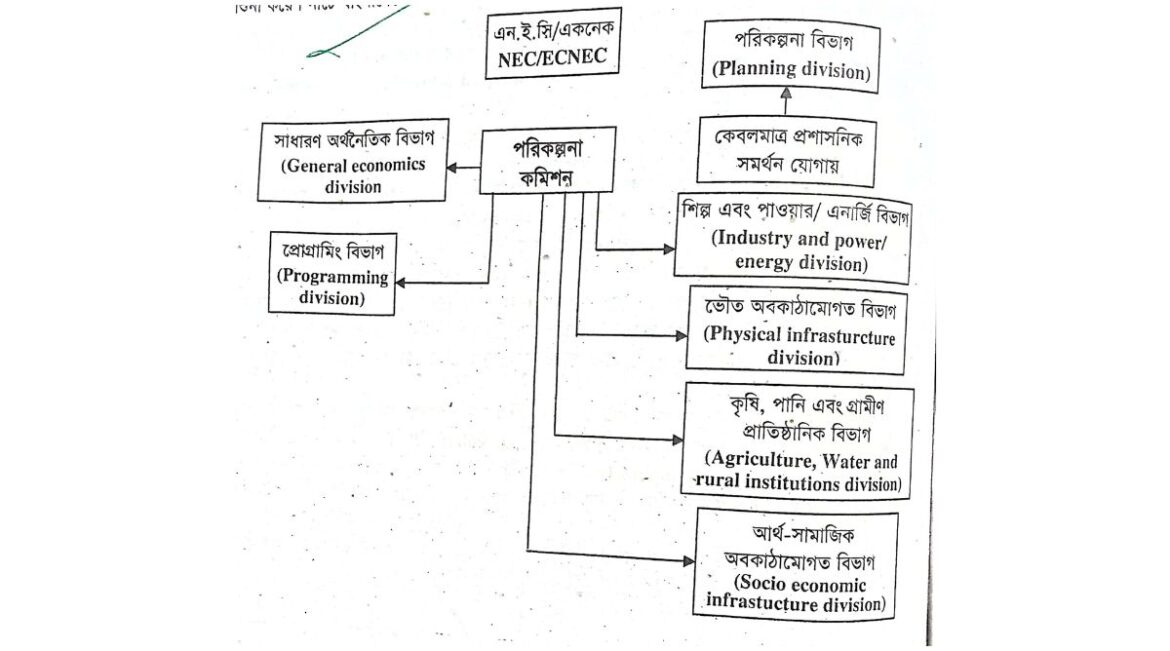 এন.ই.সি/একনেক
NEC/ECNEC
পরিকল্পনা বিভাগ
(Planning division)
কেবলমাত্র প্রশাসনিক
সমর্থন যোগায়
সাধারণ অর্থনৈতিক বিভাগ
(General economics
division
পরিকল্পনা
কমিশন
প্রোগ্রামিং বিভাগ
(Programming
division)
শিল্প এবং পাওয়ার/ এনার্জি বিভাগ
(Industry and power/
energy division)
ভৌত অবকাঠামোগত বিভাগ
(Physical infrasturcture
division)
কৃষি, পানি এবং গ্রামীণ
প্রাতিষ্ঠানিক বিভাগ
(Agriculture, Water and
rural institutions division)
আর্থ-সামাজিক
অবকাঠামোগত বিভাগ
(Socio economic
infrastucture division)